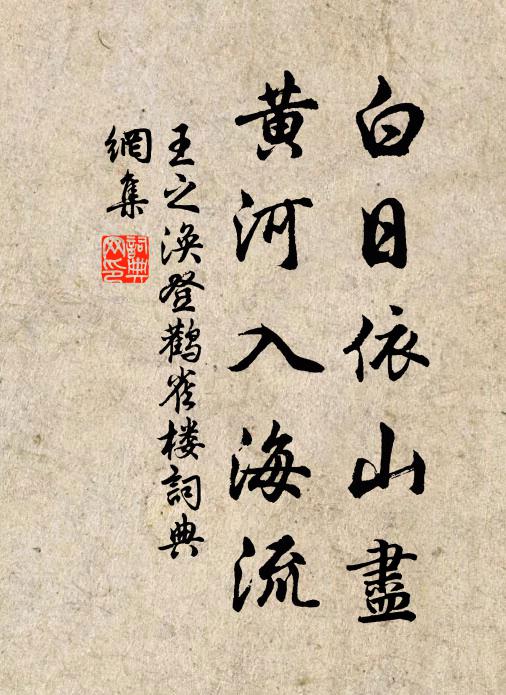 白日依山盡
黃河入海流
王之渙登鸛雀楼詞典
網集
詞典
网印